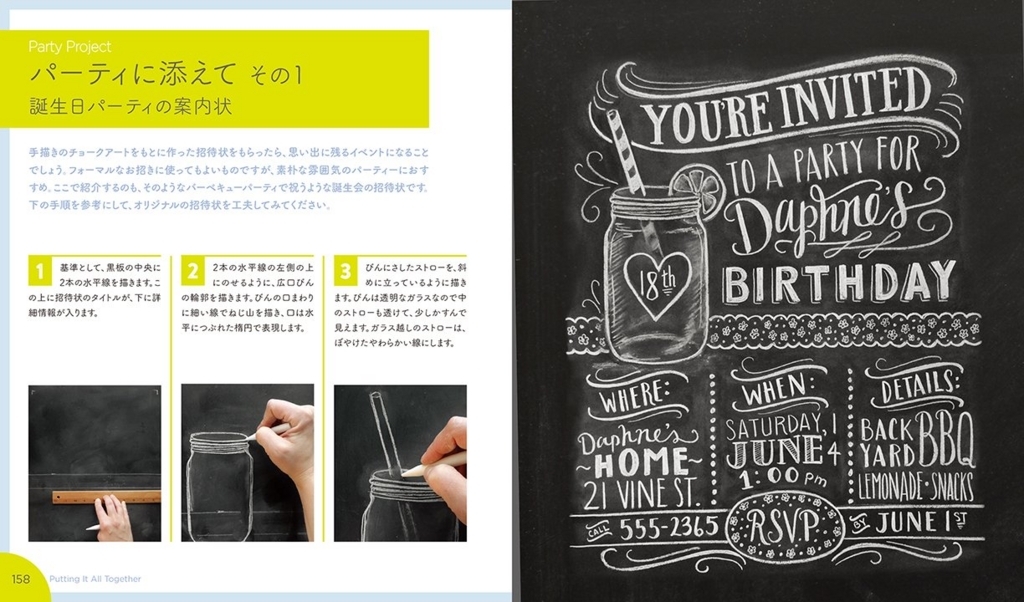 Party Project
パーティに添えて その1
誕生日パーティの案内状
手描きのチョークアートをもとに作った招待状をもらったら、思い出に残るイベントになること
でしょう。フォーマルなお招きに使ってもよいものですが、素朴な雰囲気のパーティーにおす
すめ。ここで紹介するのも、そのようなバーベキューパーティで祝うような誕生会の招待状です。
下の手順を参考にして、オリジナルの招待状を工夫してみてください。
1
基準として、黒板の中央に
2本の水平線を描きます。こ
の上に招待状のタイトルが、下に詳
細情報が入ります。
2
2本の水平線の左側の上
にのせるように、広口びん
の輪郭を描きます。びんの口まわり
に細い線でねじ山を描き、口は水
平につぶれた楕円で表現します。
3
びんにさしたストローを、斜
めに立っているように描き
ます。びんは透明なガラスなので中
のストローも透けて、少しかすんで
見えます。ガラス越しのストローは、
ぼやけたやわらかい線にします。
158
Putting It All Together
YOU'RE INVITED
TO A PARTY FOR
Daphne's
BIRTHDAY
18th
WHERE:
Daphne's
~HOME~
21 VINE ST.
WHEN:
SATURDAY,
JUNE 14
1:00 pm
DETAILS:
BACK YARD BBQ
LEMONADE·SNACKS
CALL 555-2365
R.S.V.P.
BY JUNE 1ST